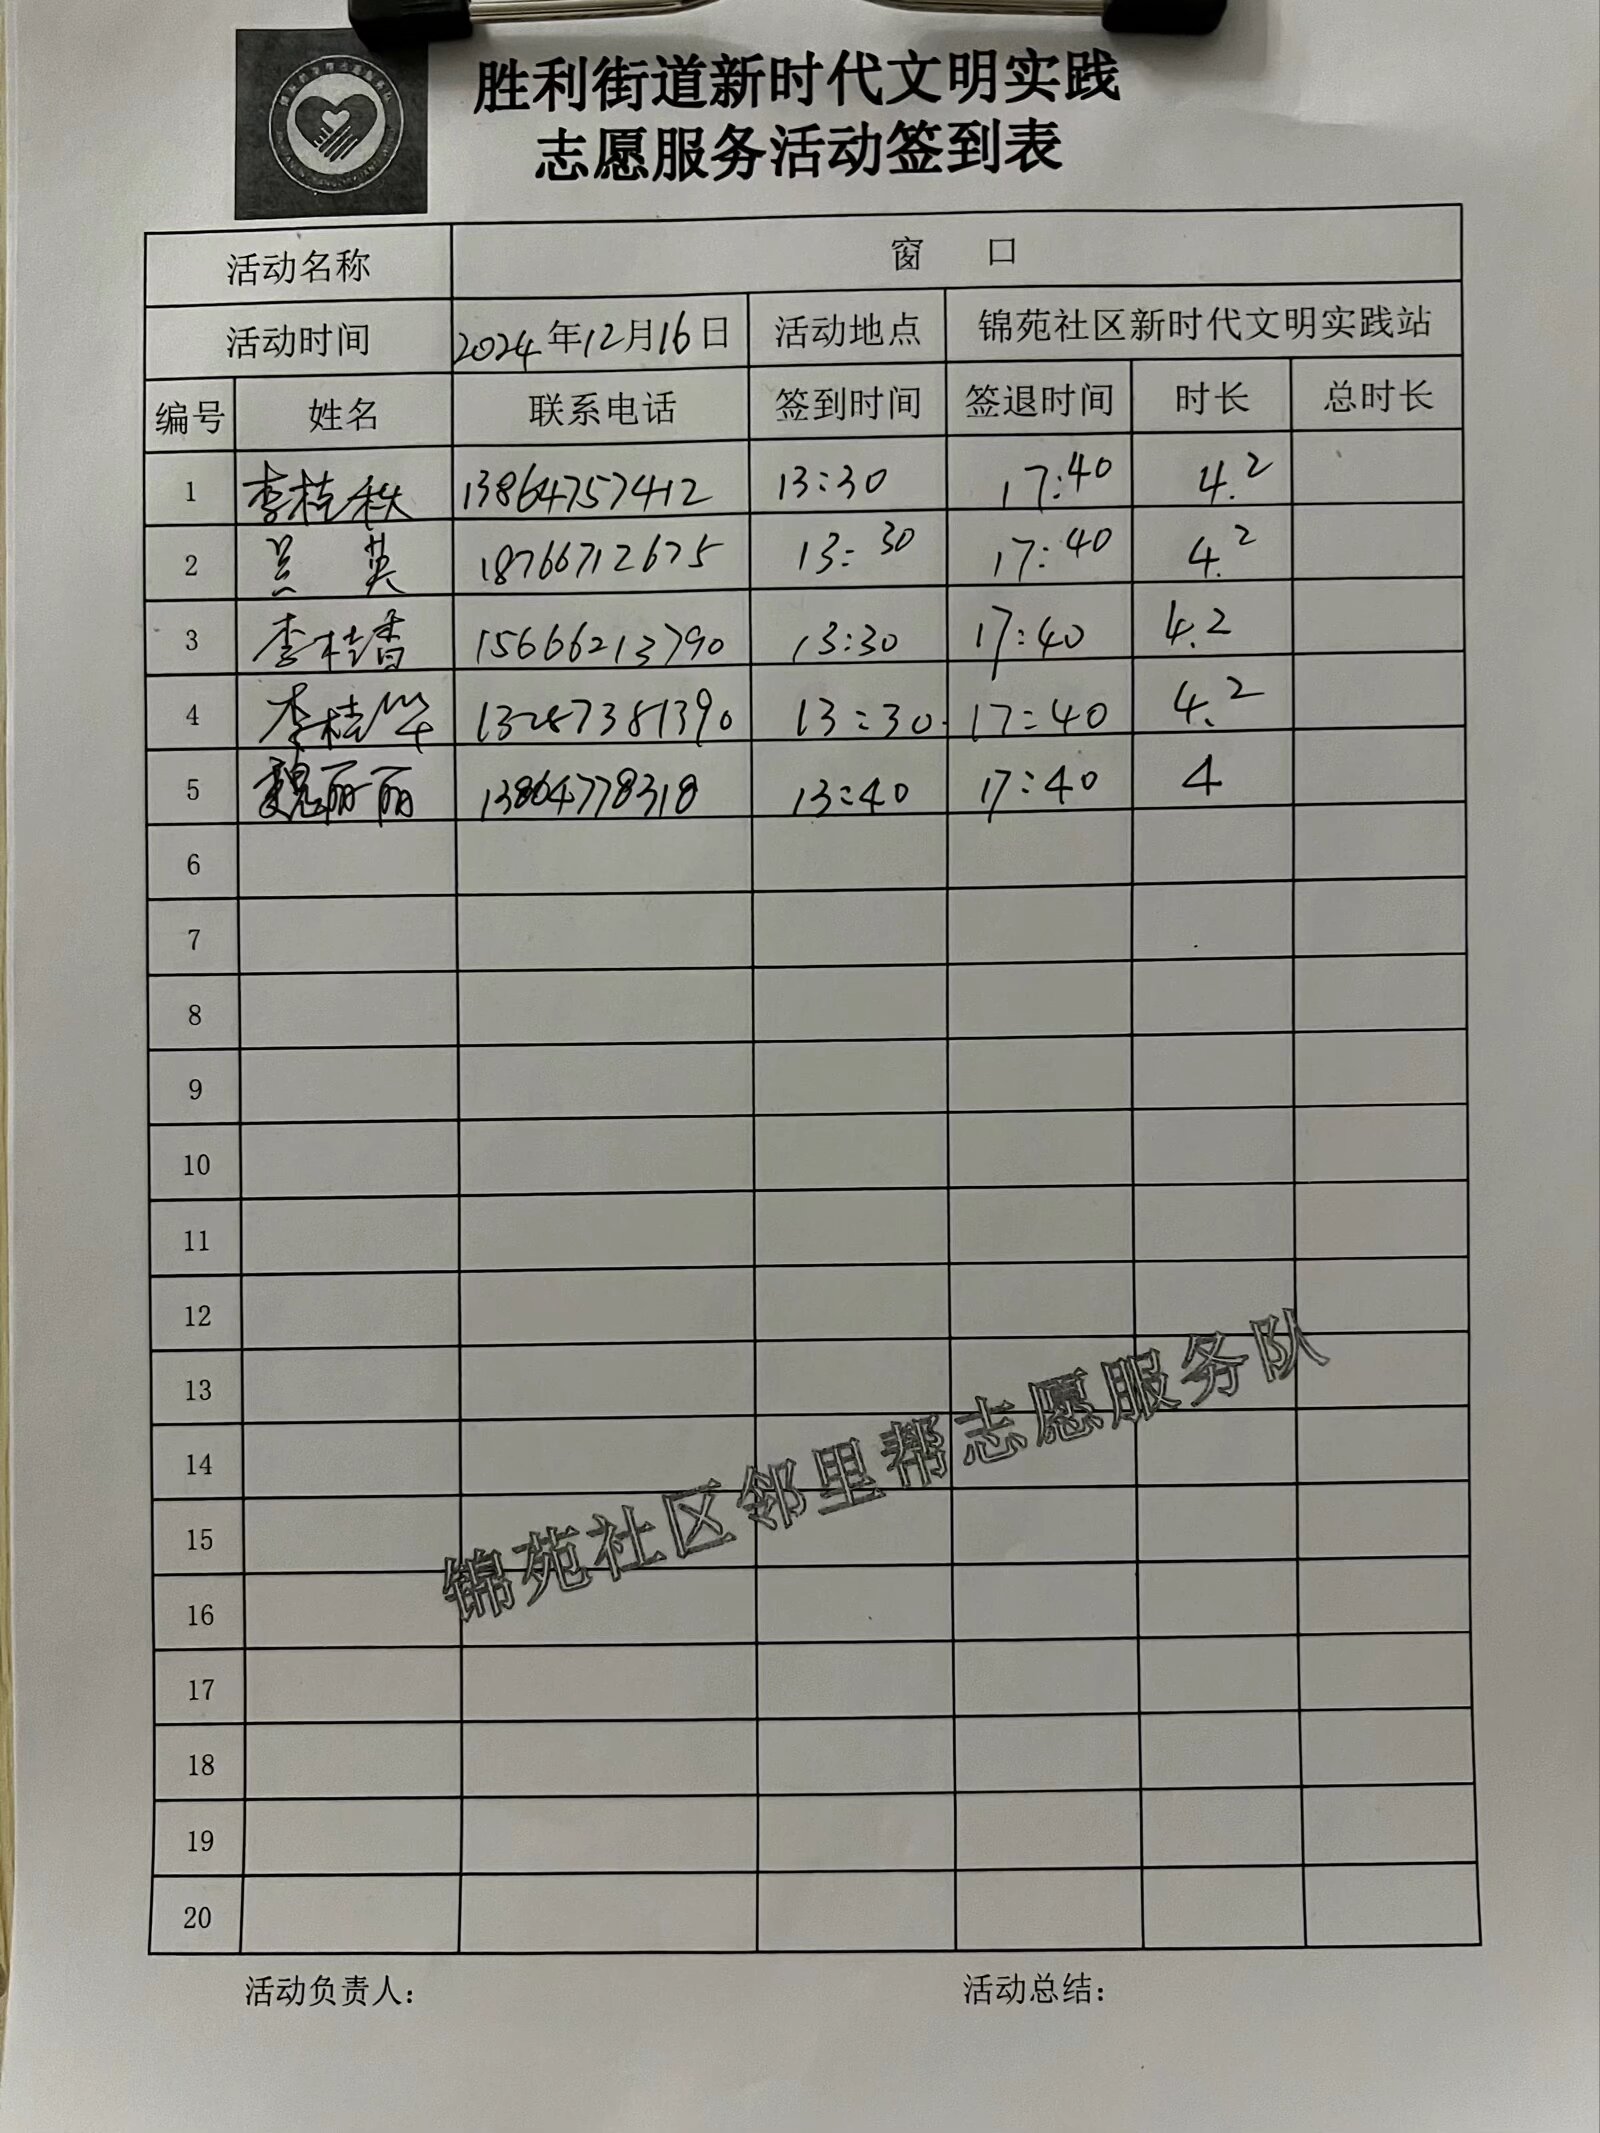 胜利街道新时代文明实践
志愿服务活动签到表
活动名称 窗 口
活动时间 2024年12月16日 活动地点 锦苑社区新时代文明实践站
编号 姓名 联系电话 签到时间 签退时间 时长 总时长
1 李桂秩 13864757412 13:30 17:40 4.2
2 兰英 18766712675 13:30 17:40 4.2
3 李桂香 15666213790 13:30 17:40 4.2
4 李桂华 13287381390 13:30 17:40 4.2
5 魏丽丽 13864778318 13:40 17:40 4
6
7
8
9
10
11
12
13
14
15
16
17
18
19
20
锦苑社区邻里帮志愿服务队
活动负责人: 活动总结: